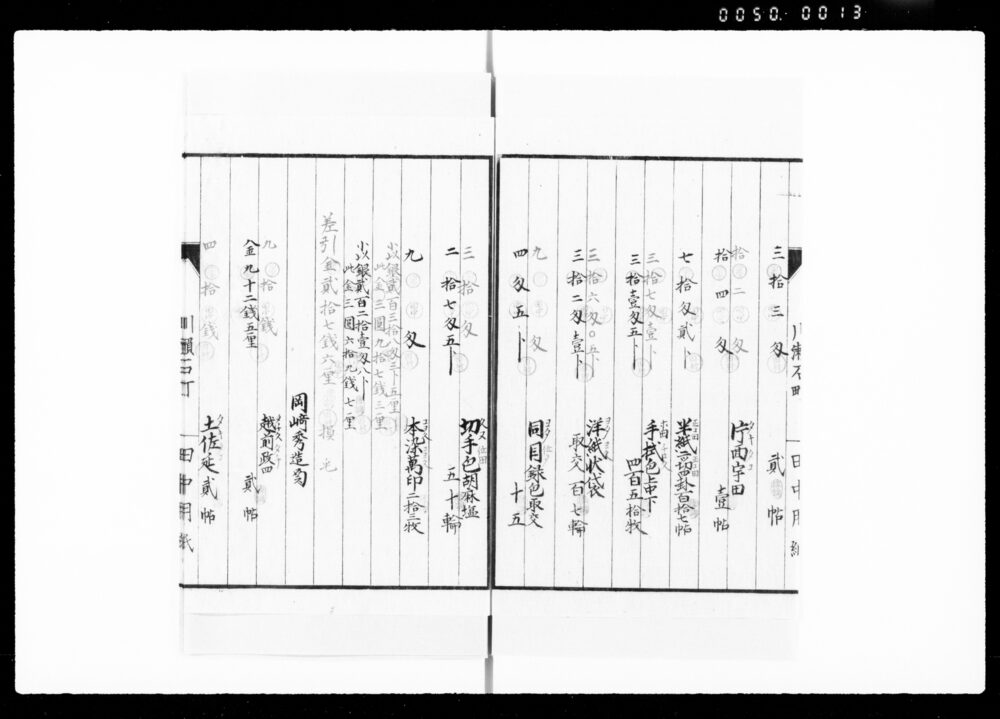 0050.0013
三拾三匁 貳帖
拾二匁
拾四匁 片西宇田 壹帖
七拾匁貳卜 半紙 百拾七帖
三拾七匁壹卜
三拾壹匁五卜 手拭包 上下 四百五拾枚
三拾六匁〇五卜 洋紙状袋
三拾二匁壹卜 取交 百七輪
九匁
四匁五卜 同目録包取交 十五
三拾匁
二拾七匁五卜 切手包胡麻塩 五十輪
九匁 本染萬印 二拾三枚
小以銀貳百三拾八匁三卜五厘
此金三圓九拾七錢三厘
小以銀貳百二拾壹匁八卜
此金三圓六拾九錢七厘
差引金貳拾七錢六厘 損毛
岡﨑秀造
九拾錢 越前政四
金九十二錢五厘 貳帖
四拾錢 土佐延貳帖
田中用紙